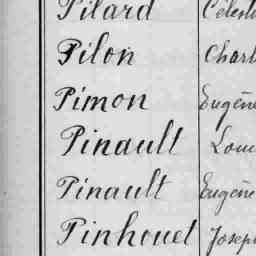 Pilard
Pilon Charl
Pimon Eugène
Pinault Loui
Pinault Eugène
Pinhouet Joseph